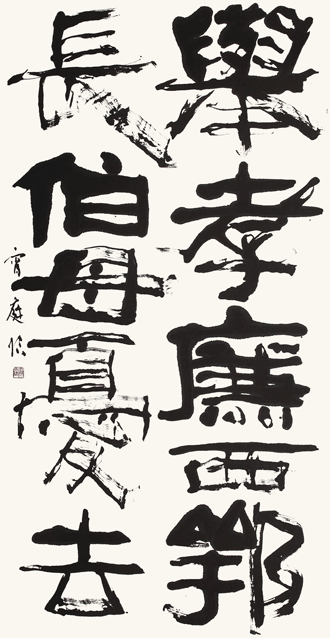 舉孝廉西鄂
長伯母憂去
庭臨